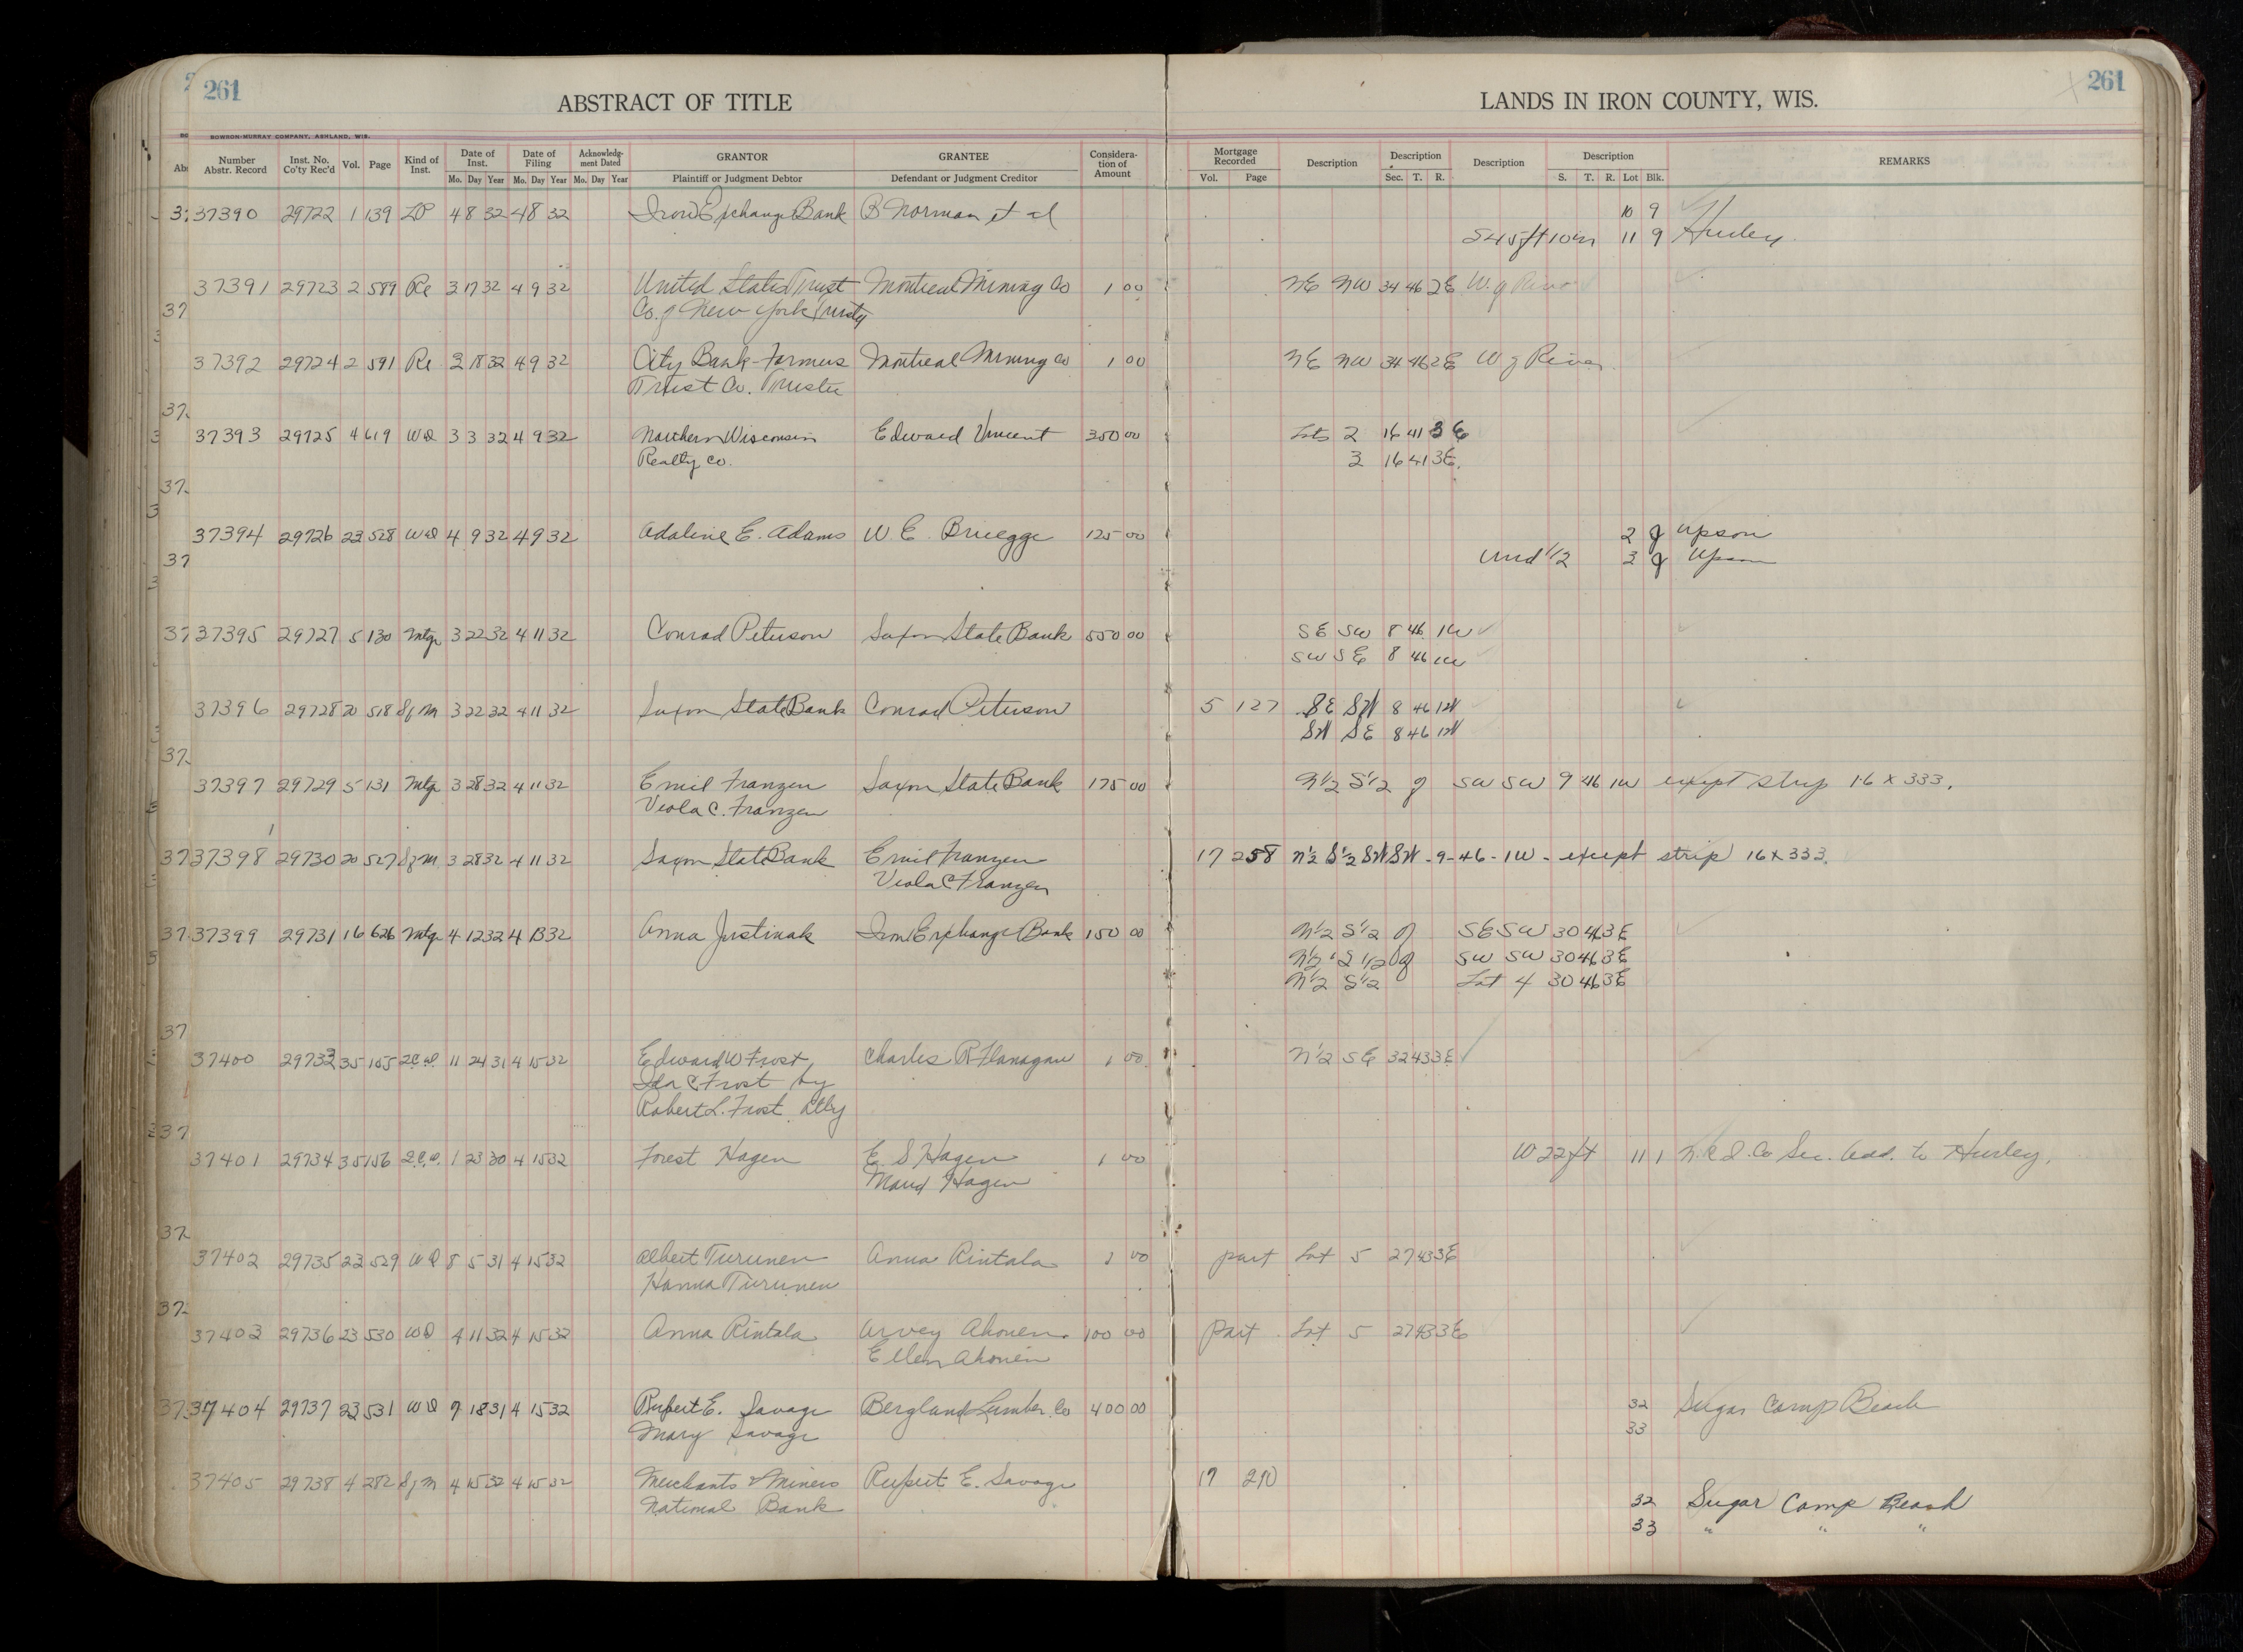 261
ABSTRACT OF TITLE
LANDS IN IRON COUNTY, WIS.
261
BOWSON-MURRAY COMPANY, ASHLAND, WIS.
Number Abstr. Record Inst. No. Co'ty Rec'd Vol. Page Kind of Inst. Date of Inst. Date of Filing Acknowledg-ment Dated GRANTOR GRANTEE Considera-tion of Amount Mortgage Recorded Description Description Description Description REMARKS
Mo. Day Year Mo. Day Year Mo. Day Year Plaintiff or Judgment Debtor Defendant or Judgment Creditor Vol. Page Sec. T. R. S. T. R. Lot Blk.
37390 29722 1 139 LP 4 8 32 4 8 32 Iron Exchange Bank B Norman et al 10 9
S 45 ft 10 in 11 9 Hurley
37391 29723 2 589 Re 3 17 32 4 9 32 United States Trust Montreal Mining Co 1 00 NE NW 34 46 2E W. of River
Co. of New York Trustee
37392 29724 2 591 Re 3 18 32 4 9 32 City Bank-Farmers Montreal Mining Co 1 00 NE NW 34 46 2E W of River
Trust Co. Trustee
37393 29725 4 619 WD 3 3 32 4 9 32 Northern Wisconsin Edward Vincent 350 00 Lots 2 16 41 3E
Realty Co. 3 16 41 3E.
37394 29726 23 528 WD 4 9 32 4 9 32 Adaline E. Adams W. E. Bruegge 125 00 2 J Upson
Und 1/2 3 J Upson
37395 29727 5 130 Mtg 3 22 32 4 11 32 Conrad Peterson Saxon State Bank 550 00 SE SW 8 46 1W
SW SE 8 46 1W
37396 29728 20 518 Sf M 3 22 32 4 11 32 Saxon State Bank Conrad Peterson 5 127 SE SW 8 46 1W
SW SE 8 46 1W
37397 29729 5 131 Mtg 3 28 32 4 11 32 Emil Franzen Saxon State Bank 175 00 N1/2 S1/2 of SW SW 9 46 1W except strip 16 x 333.
Viola C. Franzen
37398 29730 20 527 Sf M 3 28 32 4 11 32 Saxon State Bank Emil Franzen 17 258 N1/2 S1/2 SW SW - 9 - 46 - 1W - except strip 16 x 333.
Viola C Franzen
37399 29731 16 626 Mtg 4 12 32 4 13 32 Anna Justinak Iron Exchange Bank 150 00 N1/2 S1/2 of SE SW 30 46 3E
N1/2 S1/2 of SW SW 30 46 3E
N1/2 S1/2 Lot 4 30 46 3E
37400 29733 35 155 2CD 11 24 31 4 15 32 Edward W Frost, Charles R Flanagan 1 00 N1/2 SE 32 43 3E
Ida C Frost by
Robert L. Frost Atty
37401 29734 35 156 2.C.D. 1 23 30 4 15 32 Forest Hagen E S Hagen 1 00 W 22 ft 11 1 Co Sec. Add. to Hurley.
Maud Hagen
37402 29735 23 529 WD 8 5 31 4 15 32 Albert Turunen Anna Rintala 1 00 part Lot 5 27 43 3E
Hanna Turunen
37403 29736 23 530 WD 4 11 32 4 15 32 Anna Rintala Arvey Ahonen 100 00 Part Lot 5 27 43 3E
Ellen Ahonen
37404 29737 23 531 WD 9 18 31 4 15 32 Rupert E. Savage Bergland Lumber Co 400 00 32 Sugar Camp Beach
Mary Savage 33
37405 29738 4 282 Sf M 4 15 32 4 15 32 Merchants & Miners Rupert E. Savage 17 210
National Bank 32 Sugar Camp Beach
33 " " "